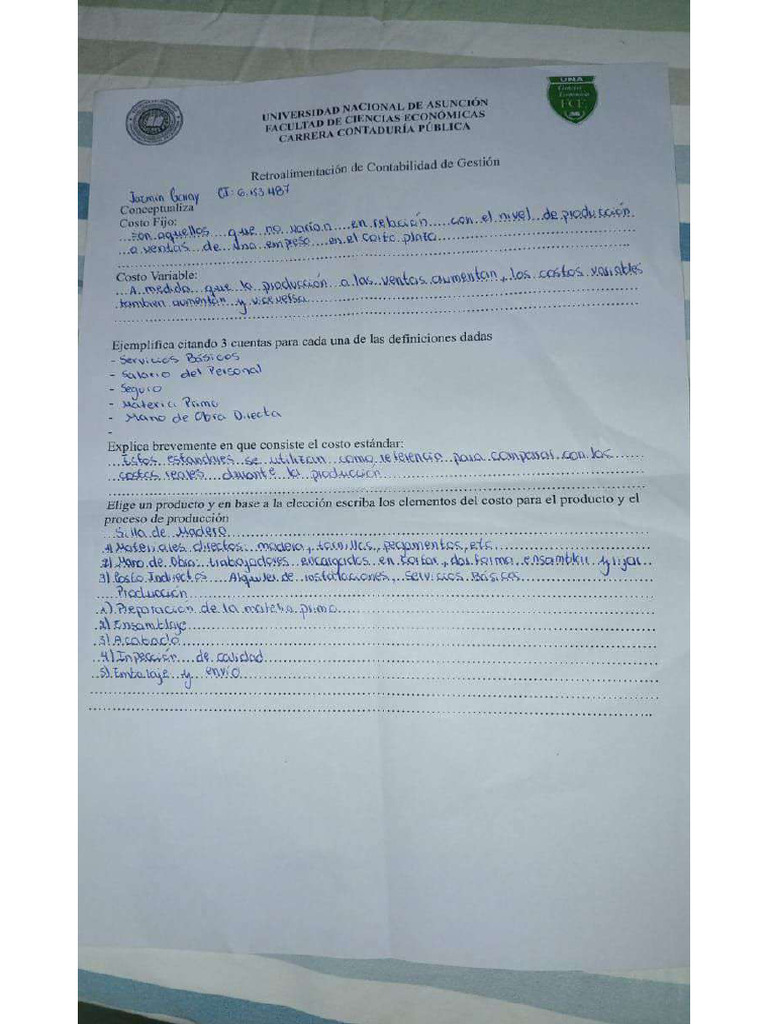 UNIVERSIDAD NACIONAL DE ASUNCIÓN
FACULTAD DE CIENCIAS ECONÓMICAS
CARRERA CONTADURÍA PÚBLICA
UNA
FCE
Retroalimentación de Contabilidad de Gestión
Jazmin CI: 6.153.487
Conceptualiza
Costo Fijo:
son aquellos que no varian en relación con el nivel de producción
o ventas de una empresa en el corto plazo
Costo Variable:
A medida que la producción o las ventas aumentan, los costos variables
tambien aumentan y viceversa
Ejemplifica citando 3 cuentas para cada una de las definiciones dadas
- Servicios Básicos
- Salario del Personal
- Seguro
- Materia Prima
- Mano de Obra Directa
-
Explica brevemente en que consiste el costo estándar:
Estos estandares se utilizan como referencia para comparar con los
costos reales durante la producción
Elige un producto y en base a la elección escriba los elementos del costo para el producto y el
proceso de producción
Silla de Madera
1) Materiales directos madera, tornillos, pegamentos, etc
2) Mano de Obra trabajadores encargados en cortar, dar forma, ensamblar y lijar
3) Costo Indirectos Alquiler de instalaciones, servicios Básicos
Producción
1) Preparación de la materia prima
2) Ensamblaje
3) Acabado
4) Inpección de calidad
5) Embalaje y envio